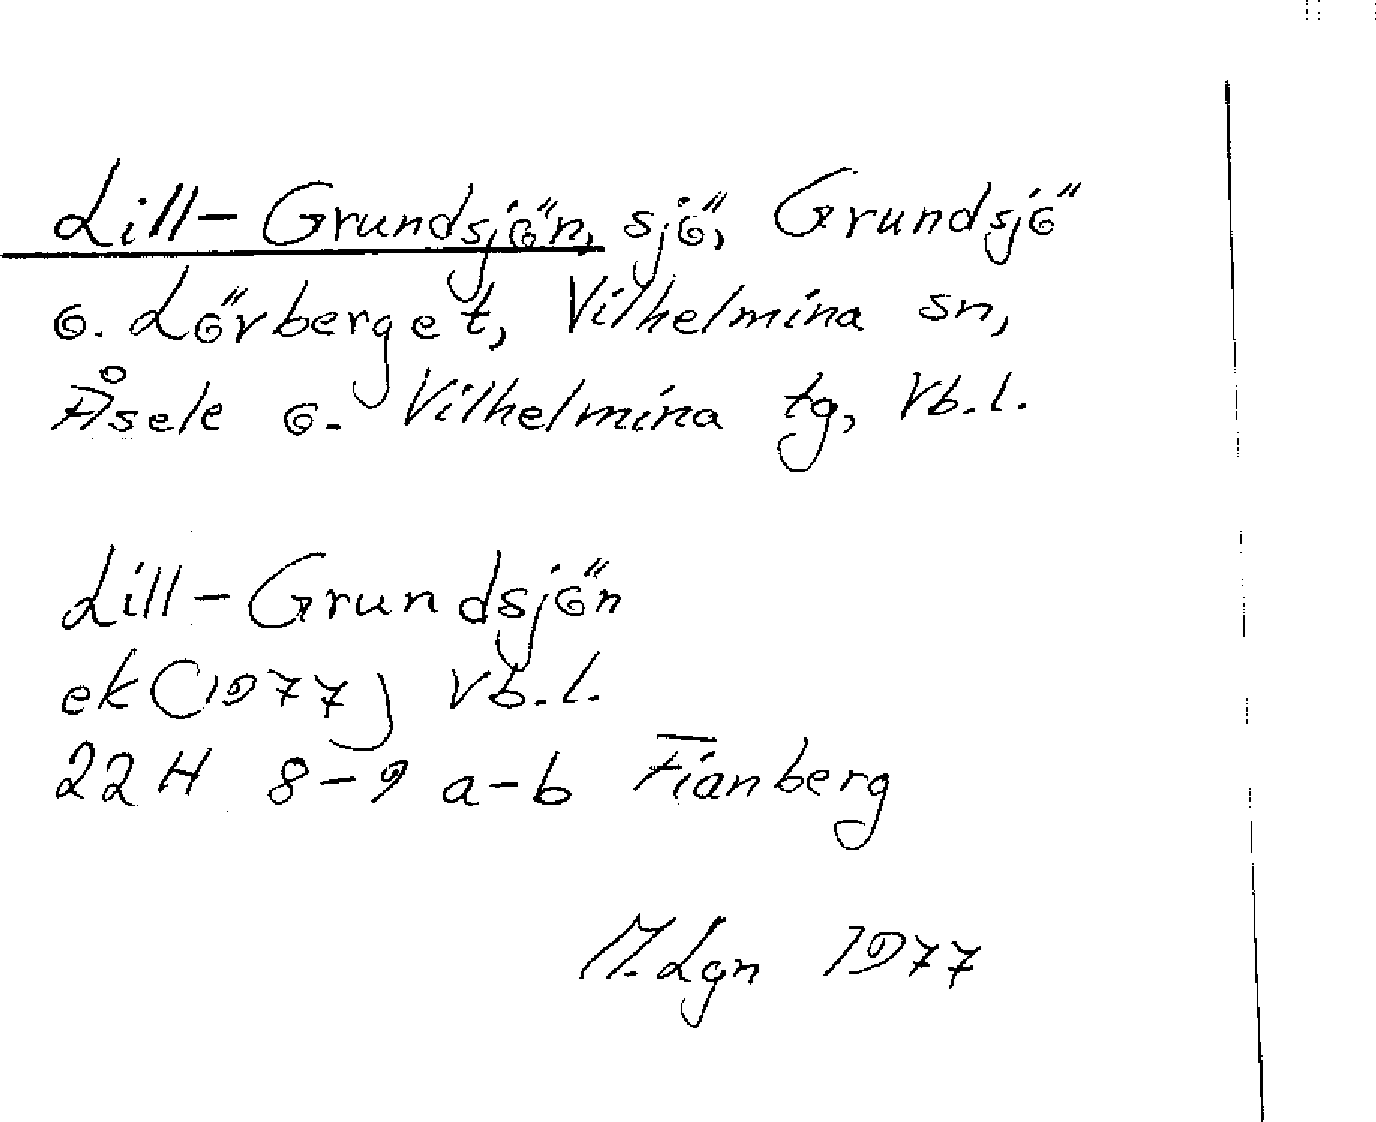 Lill-Grundsjön, sjö, Grundsjö
o. Lövberget, Vilhelmina sn,
Åsele o. Vilhelmina tg, Vb.l.
Lill-Grundsjön
ek (1977) Vb.l.
22H 8-9 a-b Fianberg
M.Lgn 1977